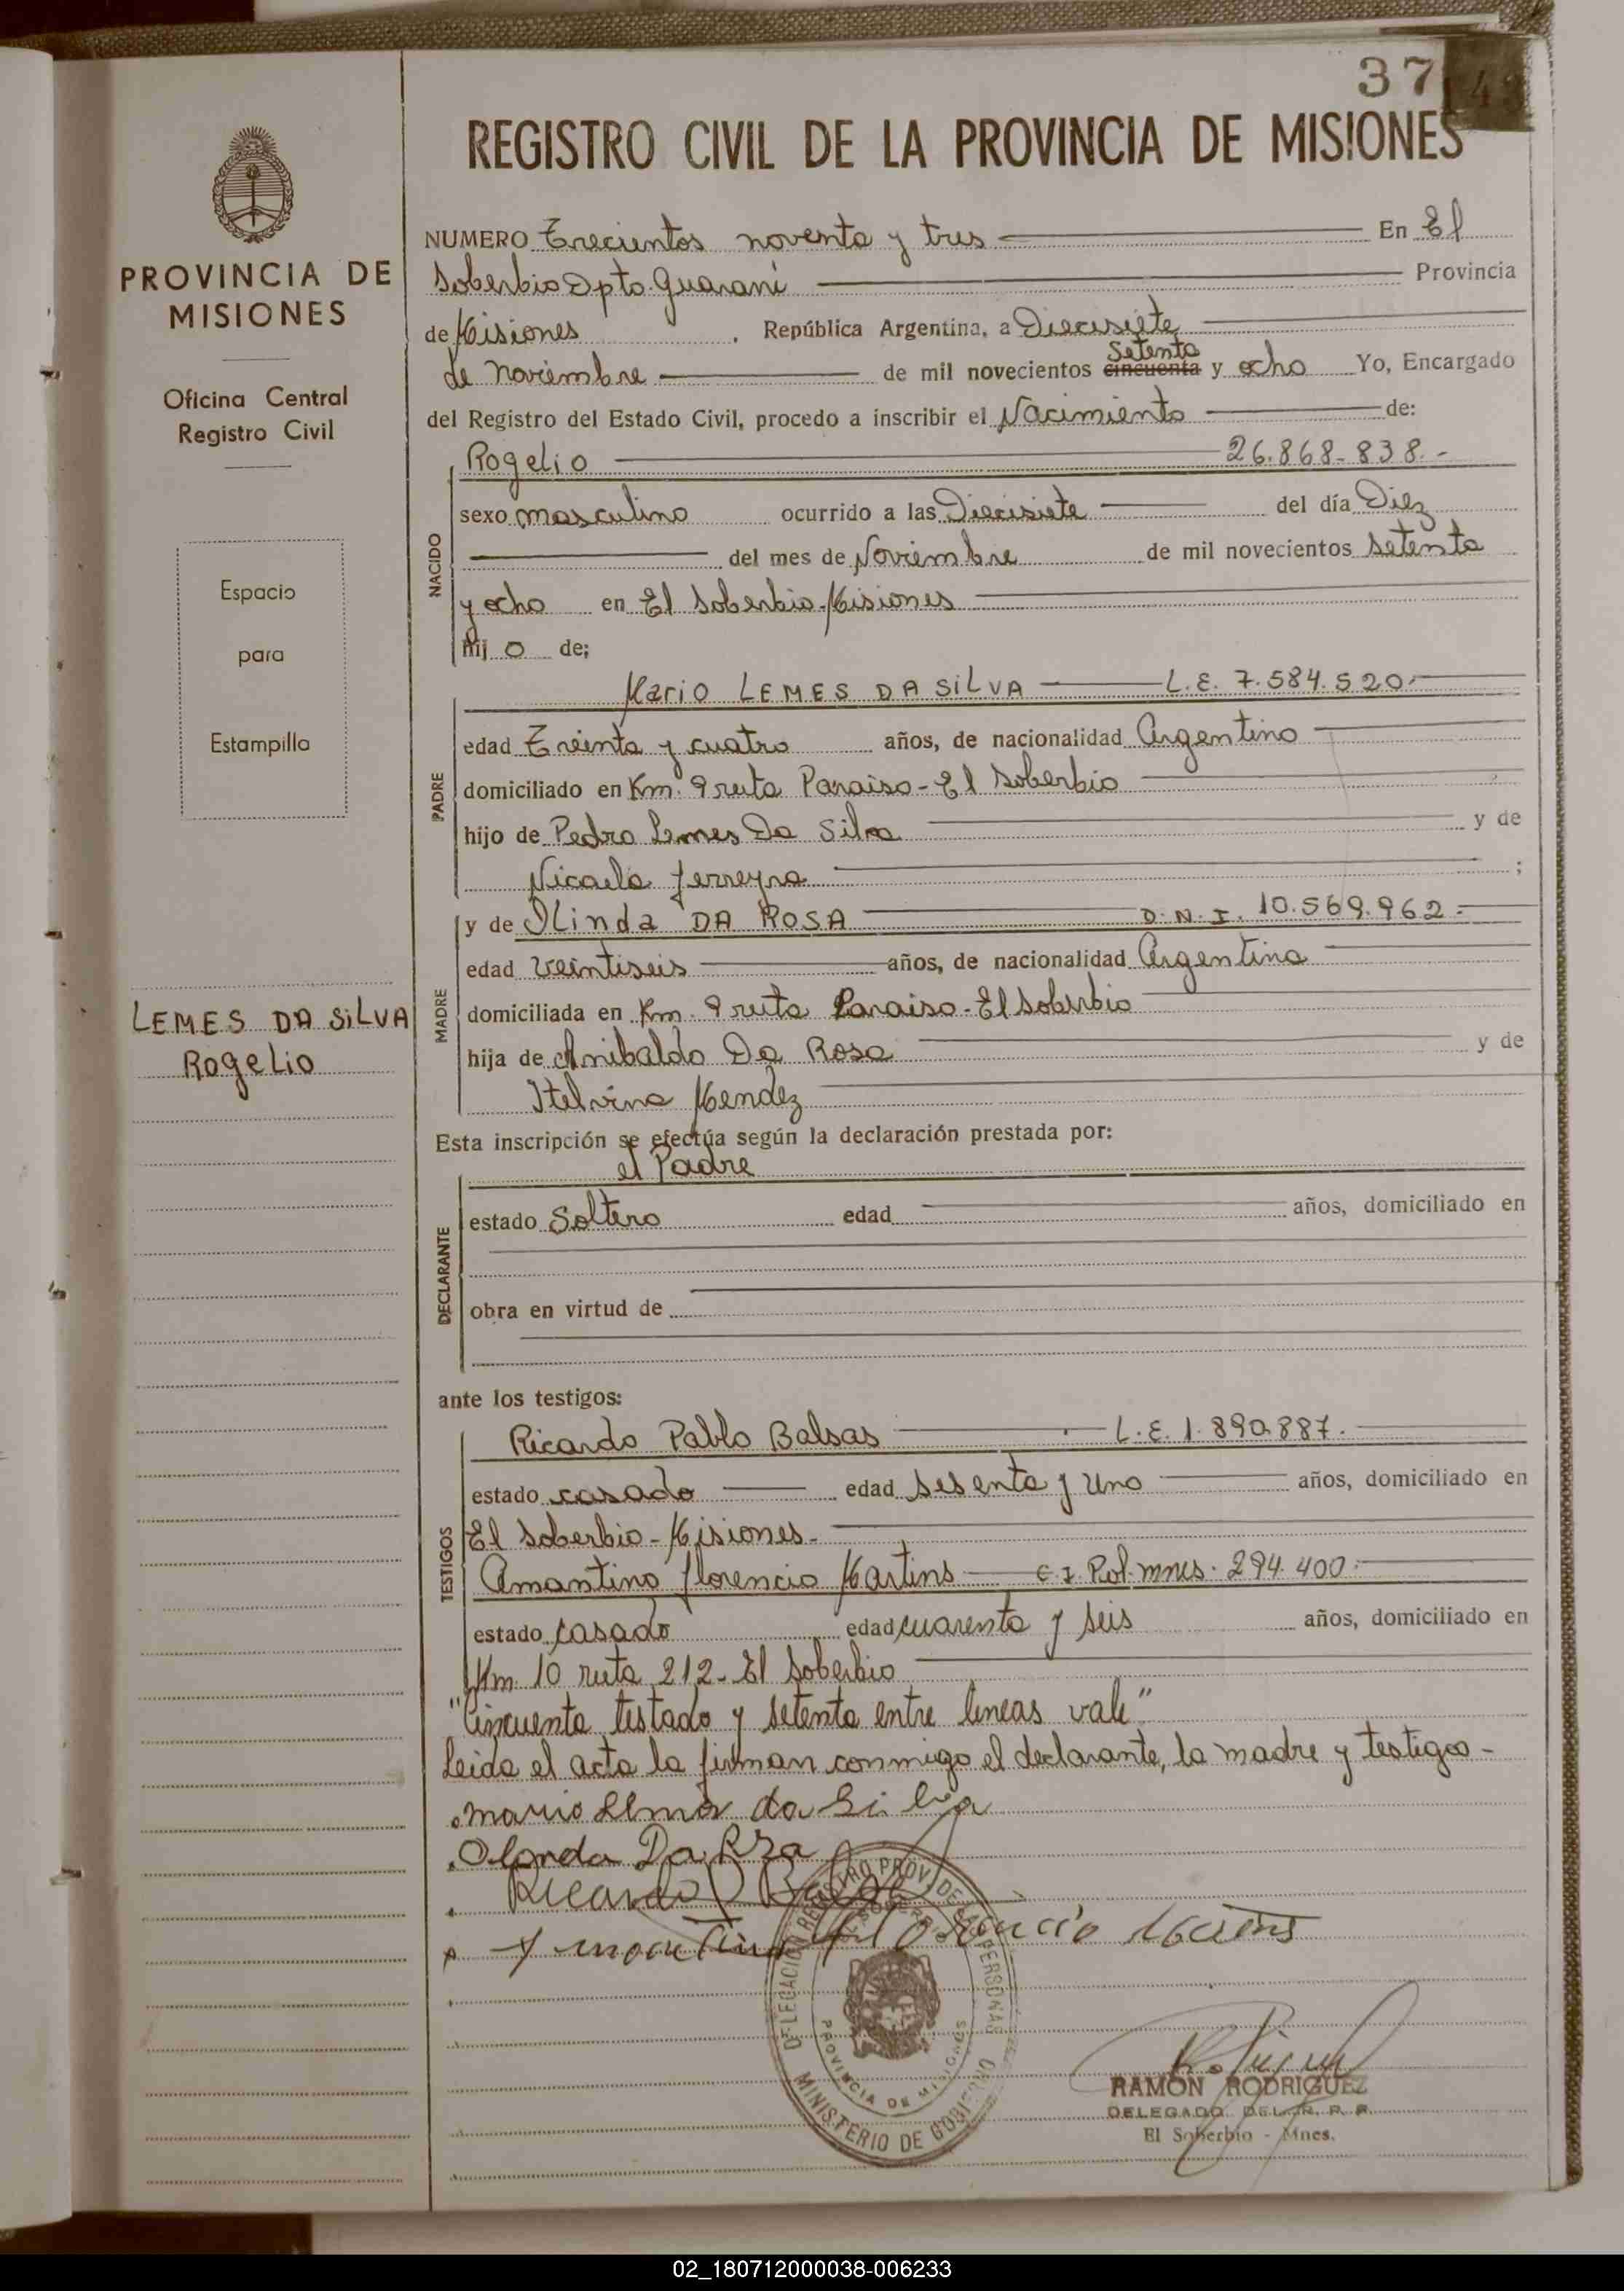 37
143
REGISTRO CIVIL DE LA PROVINCIA DE MISIONES
PROVINCIA DE
MISIONES
Oficina Central
Registro Civil
Espacio
para
Estampilla
LEMES DA SILVA
Rogelio
NUMERO Trecientos noventa y tres En El
Soberbio Dpto. Guarani Provincia
de Misiones. República Argentina, a Diecisiete
Setenta
de noviembre de mil novecientos cincuenta y ocho Yo, Encargado
del Registro del Estado Civil, procedo a inscribir el Nacimiento de:
NACIDO
Rogelio 26.868-838.-
sexo masculino ocurrido a las Diecisiete del día Diez
del mes de Noviembre de mil novecientos setenta
y ocho en El Soberbio-Misiones
hij o de;
PADRE
Mario LEMES DA SILVA L.E. 7.584.520.
edad Treinta y cuatro años, de nacionalidad Argentino
domiciliado en Km. 9 ruta Paraiso-El Soberbio
hijo de Pedro Lemes Da Silva y de
Nicaela Ferreyra ;
MADRE
y de Olinda DA ROSA D.N.I. 10.569.962.-
edad veintiseis años, de nacionalidad Argentina
domiciliada en Km. 9 ruta Paraiso-El Soberbio
hija de Anibaldo Da Rosa y de
Itelvina Mendez
Esta inscripción se efectúa según la declaración prestada por:
el Padre
DECLARANTE
estado Soltero edad años, domiciliado en
obra en virtud de
ante los testigos:
TESTIGOS
Ricardo Pablo Balsas L.E. 1.890.887.
estado casado edad sesenta y uno años, domiciliado en
El Soberbio-Misiones.
Amantino Florencio Martins C.I. Pol. mnes. 294.400.
estado casado edad cuarenta y seis años, domiciliado en
Km. 10 ruta 212-El Soberbio
"Cincuenta testado y setenta entre lineas vale"
Leida el acta la firman conmigo el declarante, la madre y testigos-
mario da Silva
Olonda Da Rza
Ricardo
DELEGACION REGISTRO PROV. DE LAS PERSONAS
EL SOBERBIO
PROVINCIA DE MISIONES
MINISTERIO DE GOBIERNO
RAMON RODRIGUEZ
DELEGADO DEL R. P. P.
El Soberbio - Mnes.
02_180712000038-006233